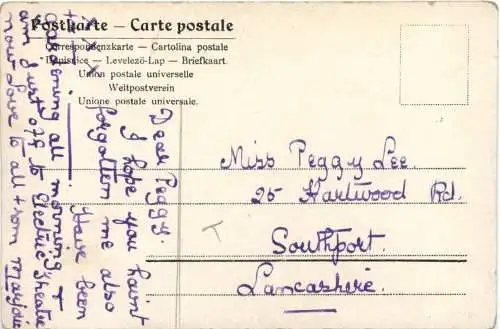 Postkarte — Carte postale
Correspondenzkarte — Cartolina postale
Dopisnice — Levelező-Lap — Briefkaart.
Union postale universelle
Weltpostverein
Unione postale universale.
Dear Peggy.
I hope you havint
forgotten me also
Have been
gardening all morning &
am just off to Electric Theatre
now Love to all from Marjorie
Miss Peggy Lee.
25 Hartwood Rd.
Southport.
Lancashire.
T